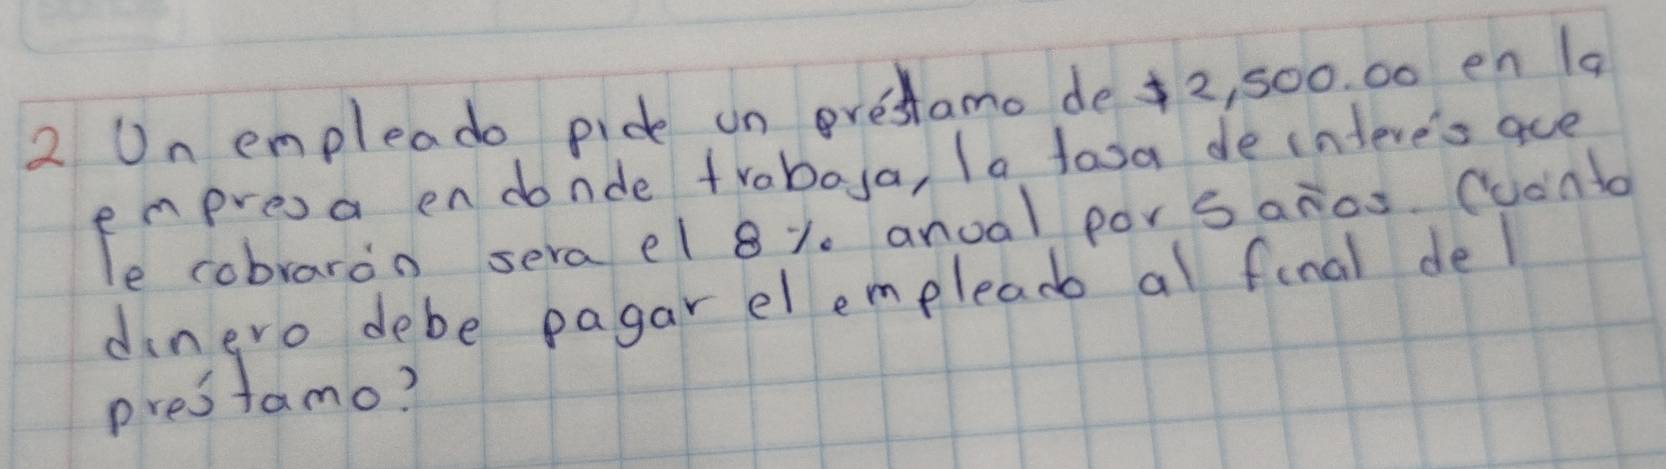 2 Un empleado pide un préstamo de $2,500.00 en la
empresa en donde trabaja, la tasa de interés que
le cobrarón sera el 8% anual por 5 años. Cuánto
dinero debe pagar el empleado al final del
préstamo?